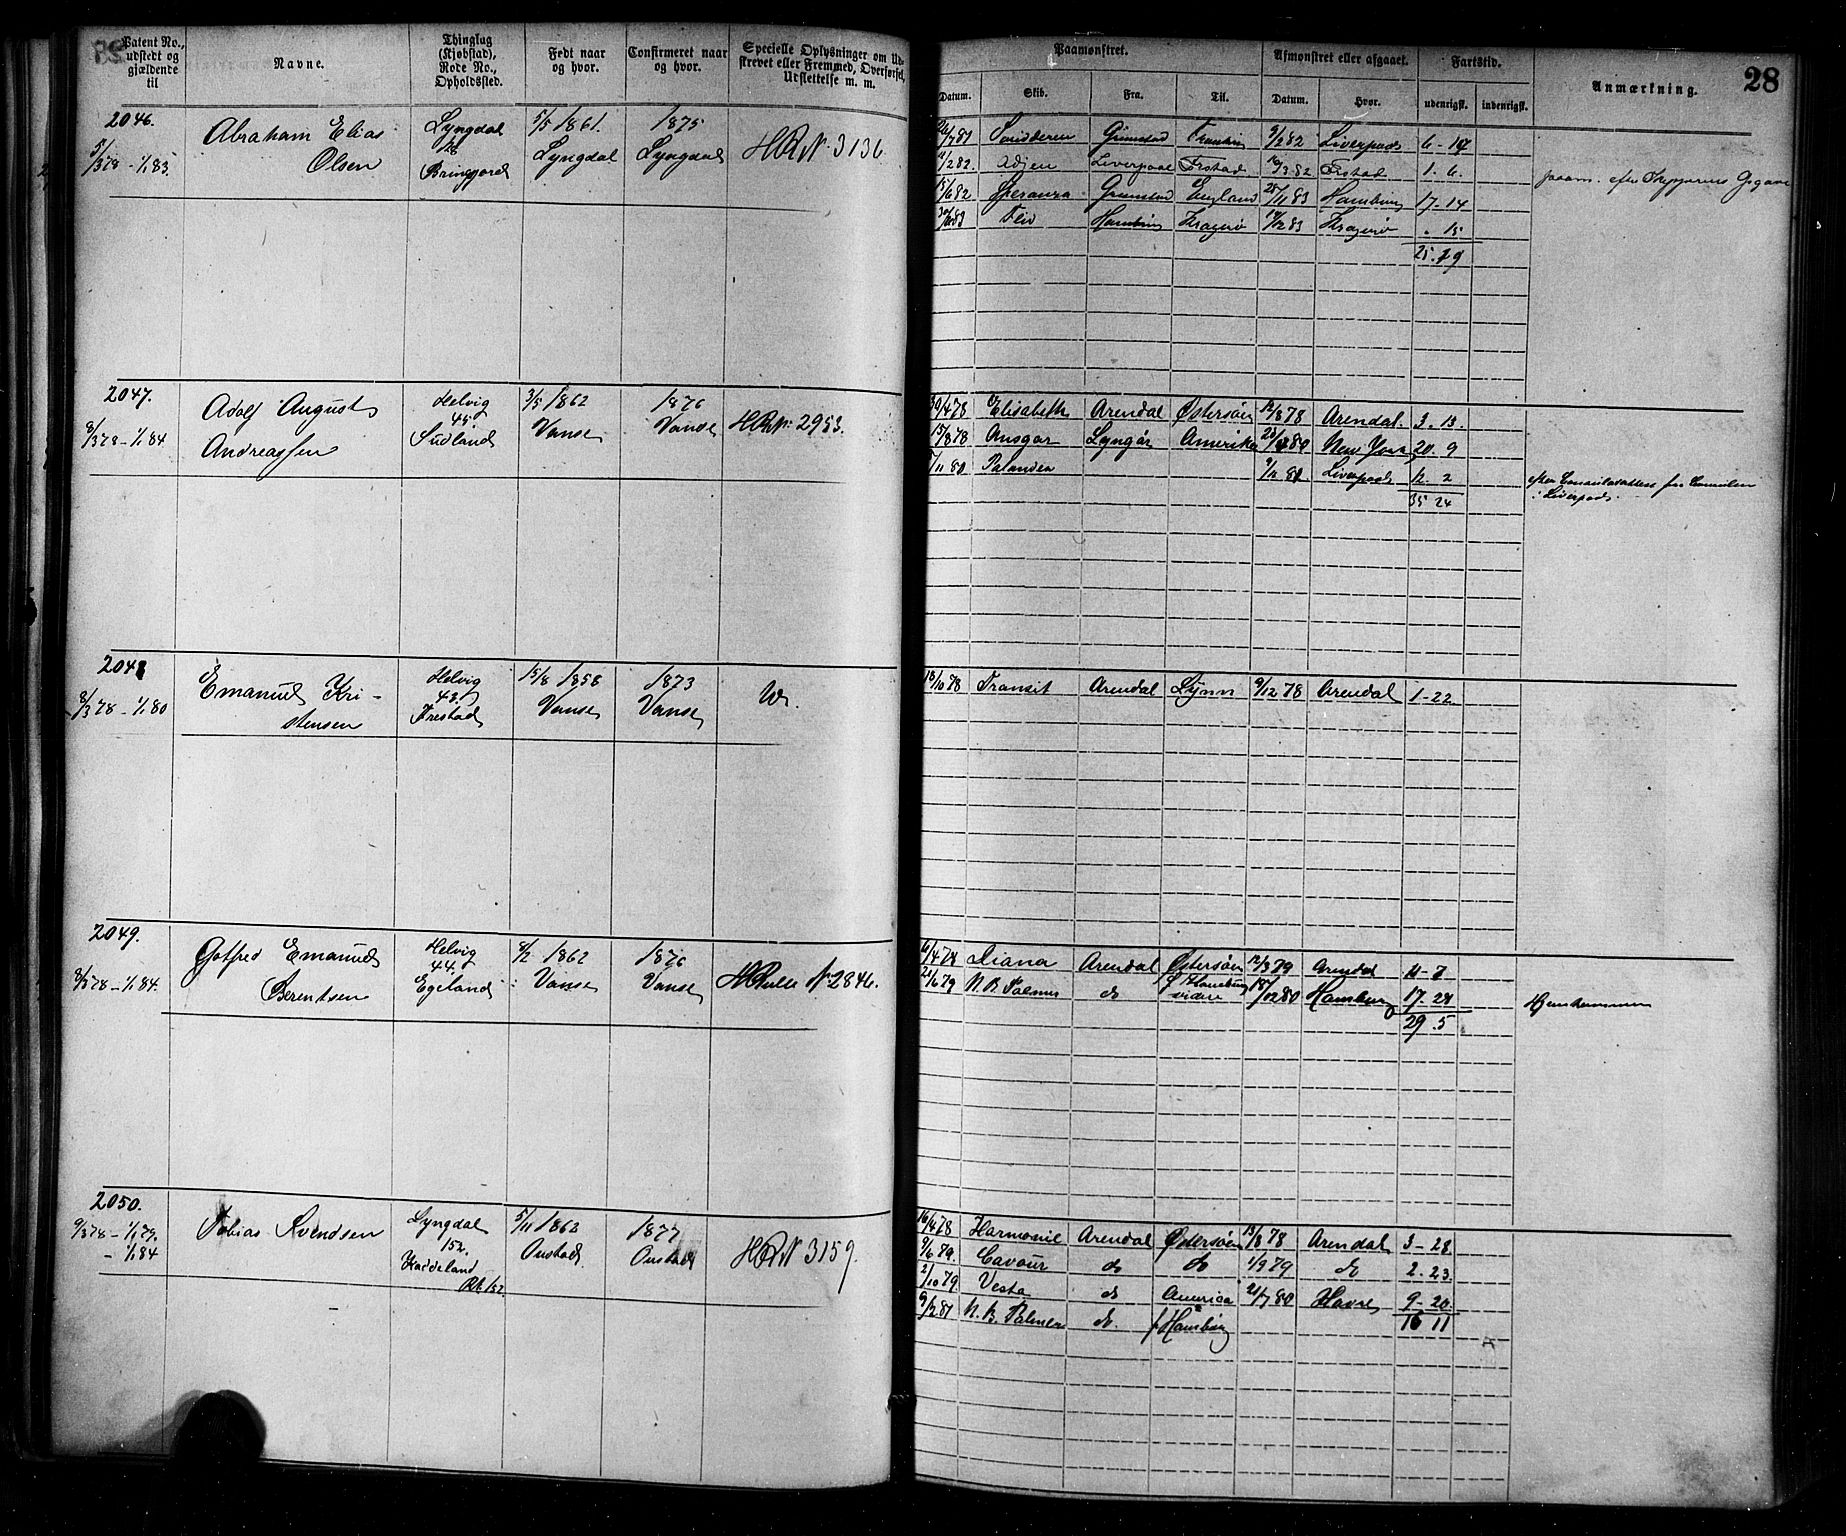 Patent No., udstedt og gjældende til
Navne.
Thinglag (Kjøbstad), Rode No., Opholdssted.
Født naar og hvor.
Confirmeret naar og hvor.
Specielle Oplysninger om Udskrevet eller Fremmed, Overførsel, Udslettelse m. m.
Paamønstret.
Datum.
Skib.
Fra.
Til.
Afmønstret eller afgaaet.
Datum.
Hvor.
Fartstid.
udenrigsk.
indenrigsk.
Anmærkning.
28
2046.
5/3 78 - 1/1 83.
Abraham Elias
Olsen
Lyngdal
Bringsjord
5/5 1861.
Lyngdal
1875
Lyngdal
HRN 3136
Grimstad 9/2 82 Liverpool 6 - 14
11/2 82 Liverpool 16/3 82 1. 6.
15/6 82 Speranza Grimstad England 25/11 83 Hamburg 17. 14
Hamburg Kragerø 19/12 83 Kragerø . 15
25. 19
paam. efter Skipperens Opgave
2047.
8/3 78 - 1/1 84
Adolf August
Andreassen
Helvig
45.
Sudland
3/5 1862
Vanse
1876
Vanse
HRN: 2953.
30/4 78 Elisabeth Arendal Østersøen 12/8 78 Arendal. 3. 13.
15/8 78 Ansgar Lyngør Amerika New York 20. 9
Liverpool 12. 2
35 24
i Liverpool.
2048
8/3 78 - 1/1 80
Emanuel Kri-
stensen
Helvig
43.
Frestad
15/8 1858
Vanse
1873
Vanse
W.
18/10 78 Transit Arendal Lynn 9/12 78 Arendal 1-22
2049.
8/3 78 - 1/1 84.
Gotfred Emanuel
Berentsen
Helvig
44.
Egeland
8/2 1862
Vanse
1876
Vanse
HRulle N: 2846.
Diana Arendal Østersøen 12/3 79 Arendal 11-7
21/6 79 N. B. Palmer do f/Hamburg videre Hamburg 17. 28
29. 5
Hjemkommen
2050.
9/3 78 - 1/1 79.
- 1/1 84
Tobias Svendsen
Lyngdal
152.
Kaddeland
5/11 1862
Austad
1877
Austad
HRN 3159.
16/4 78 Harmonie Arendal Østersøen 13/8 78 Arendal 3-28
9/6 79. Cavour do do 1/9 79 do 2. 23.
2/10 79. Vesta do America 21/7 80 Havre 9-20
9/2 81 N. B. Palmer do. f/Hamburg 16 11